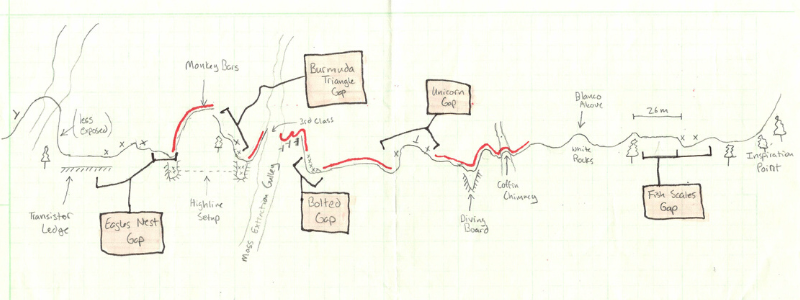 Monkey Bars
Burmuda
Triangle
Gap
(less
Exposed)
3rd Class
Unicorn
Gap
Blanco
Alcove
26m
Transistor
Ledge
Eagles Nest
Gap
Highline
Setup
Mass Extraction Gulley
Bolted
Gap
Diving
Board
Coffin
Chimney
White
Rocks
Fish Scales
Gap
Inspiration
Point